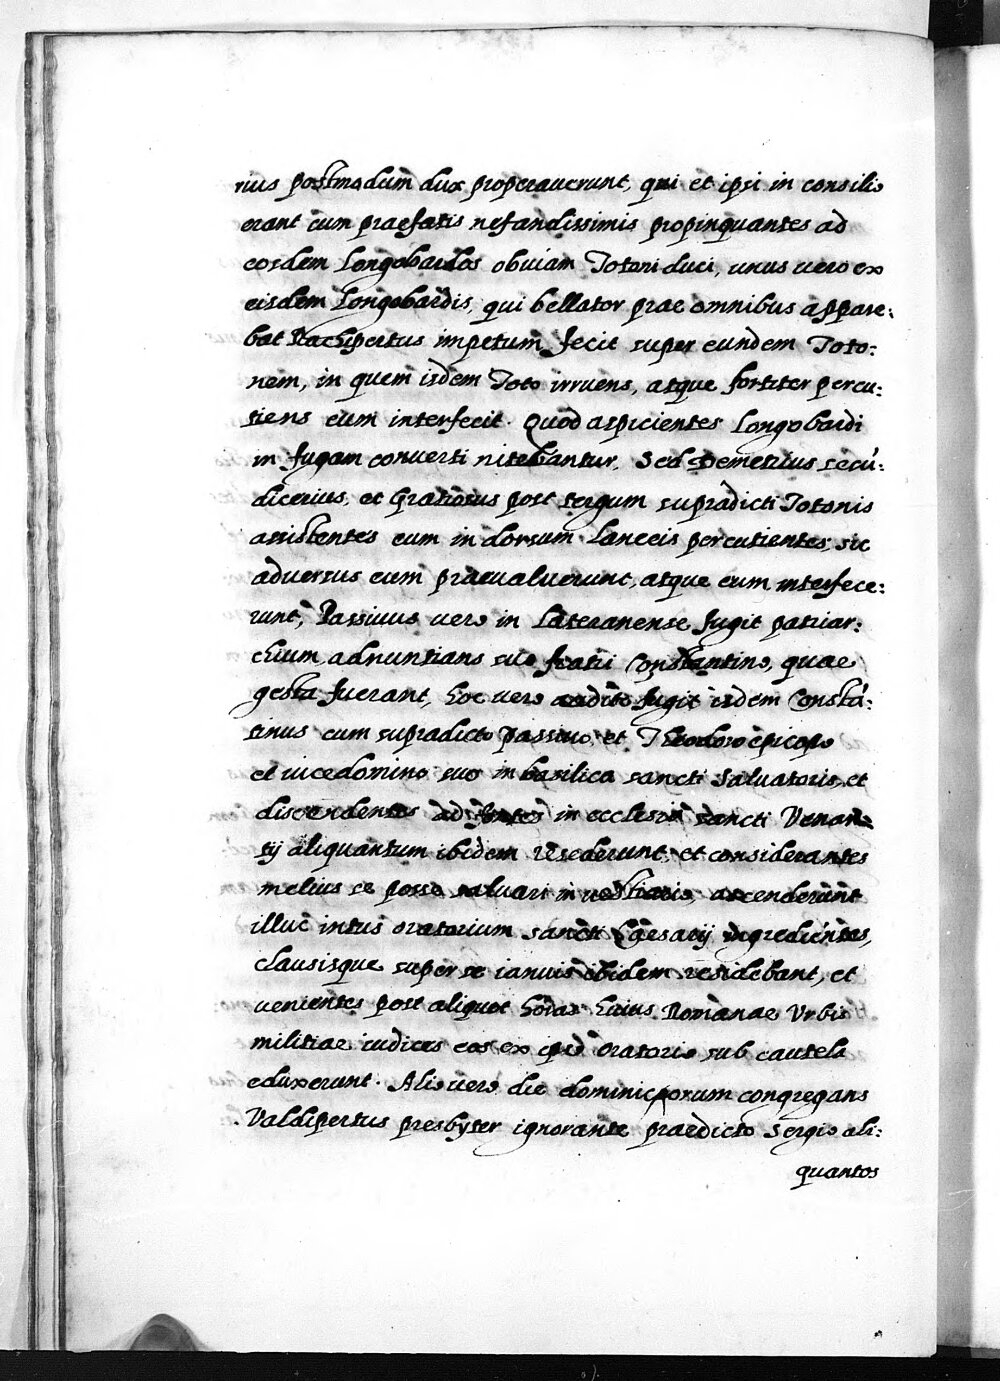 rius postmodum dux properauerunt, qui et ipsi in consilio
erant cum praefatis nefandissimis propinquantes ad
eosdem Longobardos obuiam Totoni duci, unus uero ex
eisdem Longobardis, qui bellator prae omnibus appare:
bat Rachipertus impetum fecit super eundem Toto:
nem, in quem isdem Toto irruens, atque fortiter percu:
tiens eum interfecit. Quod aspicientes Longobardi
in fugam conuerti nitebantur. Sed Demetrius secū:
dicerius, et Gratiosus post tergum supradicti Totonis
assistentes eum in dorsum Lanceis percutientes, sic
aduersus eum praeualuerunt, atque eum interfece:
runt, Passiuus uero in Lateranense fugit patriar:
chium adnuntians suo fratri Constantino, quae
gesta fuerant, hoc uero audito fugit isdem Constā:
tinus cum supradicto Passiuo, et Theodoro episcopo
et uicedomino suo in basilica sancti Saluatoris, et
discendentes ad fontes in ecclesia sancti Venan
tij aliquantum ibidem resederunt, et considerantes
melius se posse saluari in uestiario, ascenderunt
illuc intus oratorium sancti Caesarij ingredientes,
clausisque super se ianuis ibidem residebant, et
uenientes post aliquot horas huius Romanae Vrbis
militiae iudices eos ex ipso oratorio sub cautela
eduxerunt. Alio uero die dominicorum congregans
Valdipertus presbyter ignorante praedicto Sergio ali:
quantos